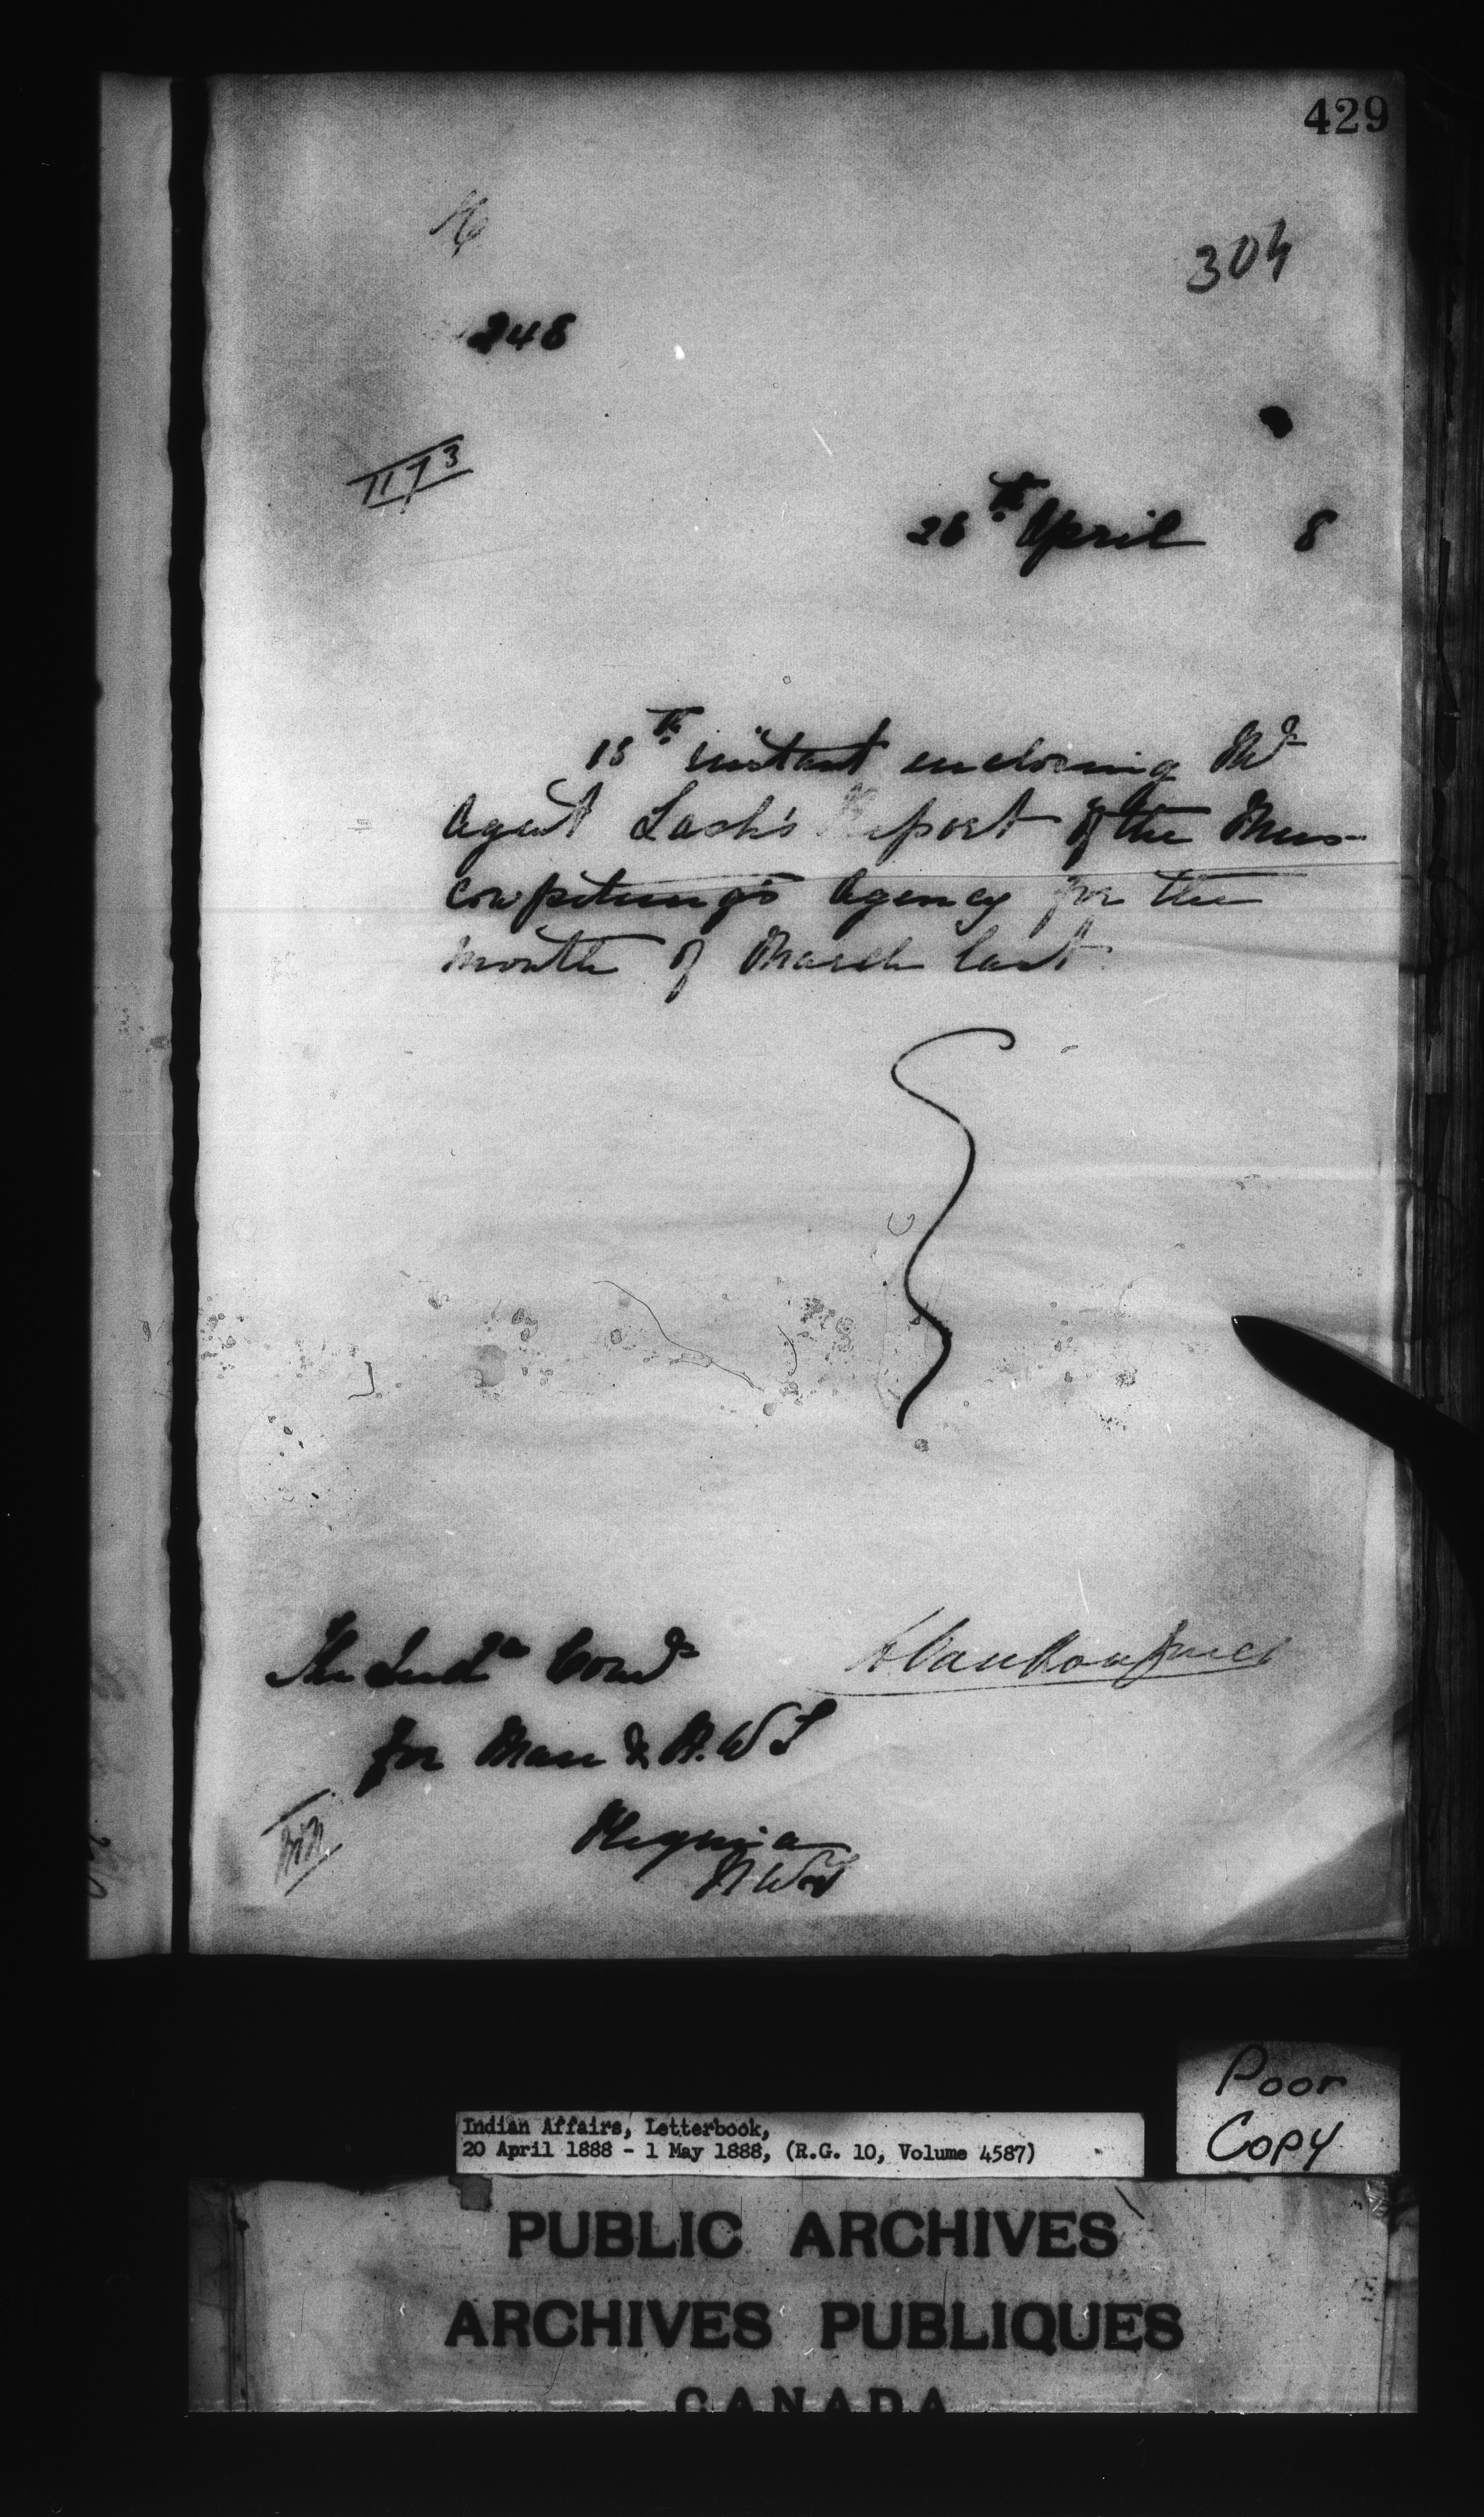 429
304
248
1173
26th April 8
18th instant enclosing Mr
Agent Lash's Report of the Mus-
cowpetung's Agency for the
month of March last
The Indn Comr
L. Vankoughnet
for Man & N.W.T
Regina
N.W.T
Poor
Copy
Indian Affairs, Letterbook,
20 April 1888 - 1 May 1888, (R.G. 10, Volume 4587)
PUBLIC ARCHIVES
ARCHIVES PUBLIQUES
CANADA